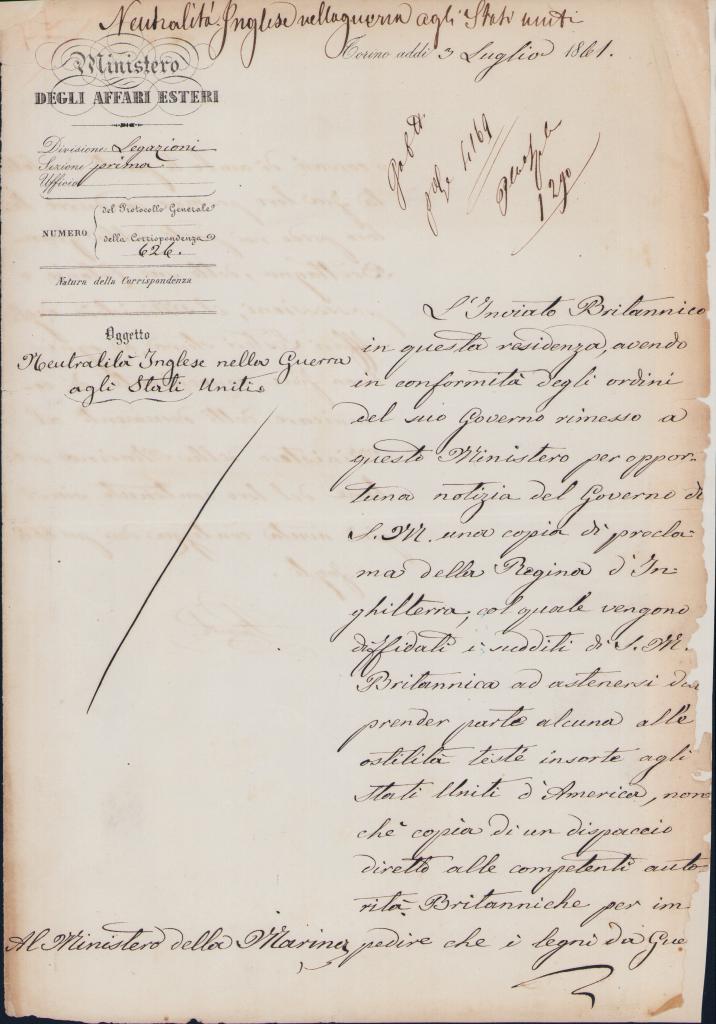 Neutralità Inglese nella guerra agli Stati uniti
Torino addì 3 Luglio 1861.
Ministero
DEGLI AFFARI ESTERI
Divisione Legazioni
Sezione prima
Ufficio
NUMERO
del Protocollo Generale
della Corrispondenza
626.
Natura della Corrispondenza
Oggetto
Neutralità Inglese nella Guerra
agli Stati Uniti
L'Inviato Britannico
in questa residenza, avendo
in conformità degli ordini
del suo Governo rimesso a
questo Ministero per oppor-
tuna notizia del Governo di
S. M. una copia di procla-
ma della Regina d'In-
ghilterra, col quale vengono
diffidati i sudditi di S. M.
Britannica ad astenersi da
prender parte alcuna alle
ostilità testé insorte agli
Stati Uniti d'America, non
chè copia di un dispaccio
diretto alle competenti auto-
rità Britanniche per im-
pedire che i legni da Gue
Al Ministero della Marina